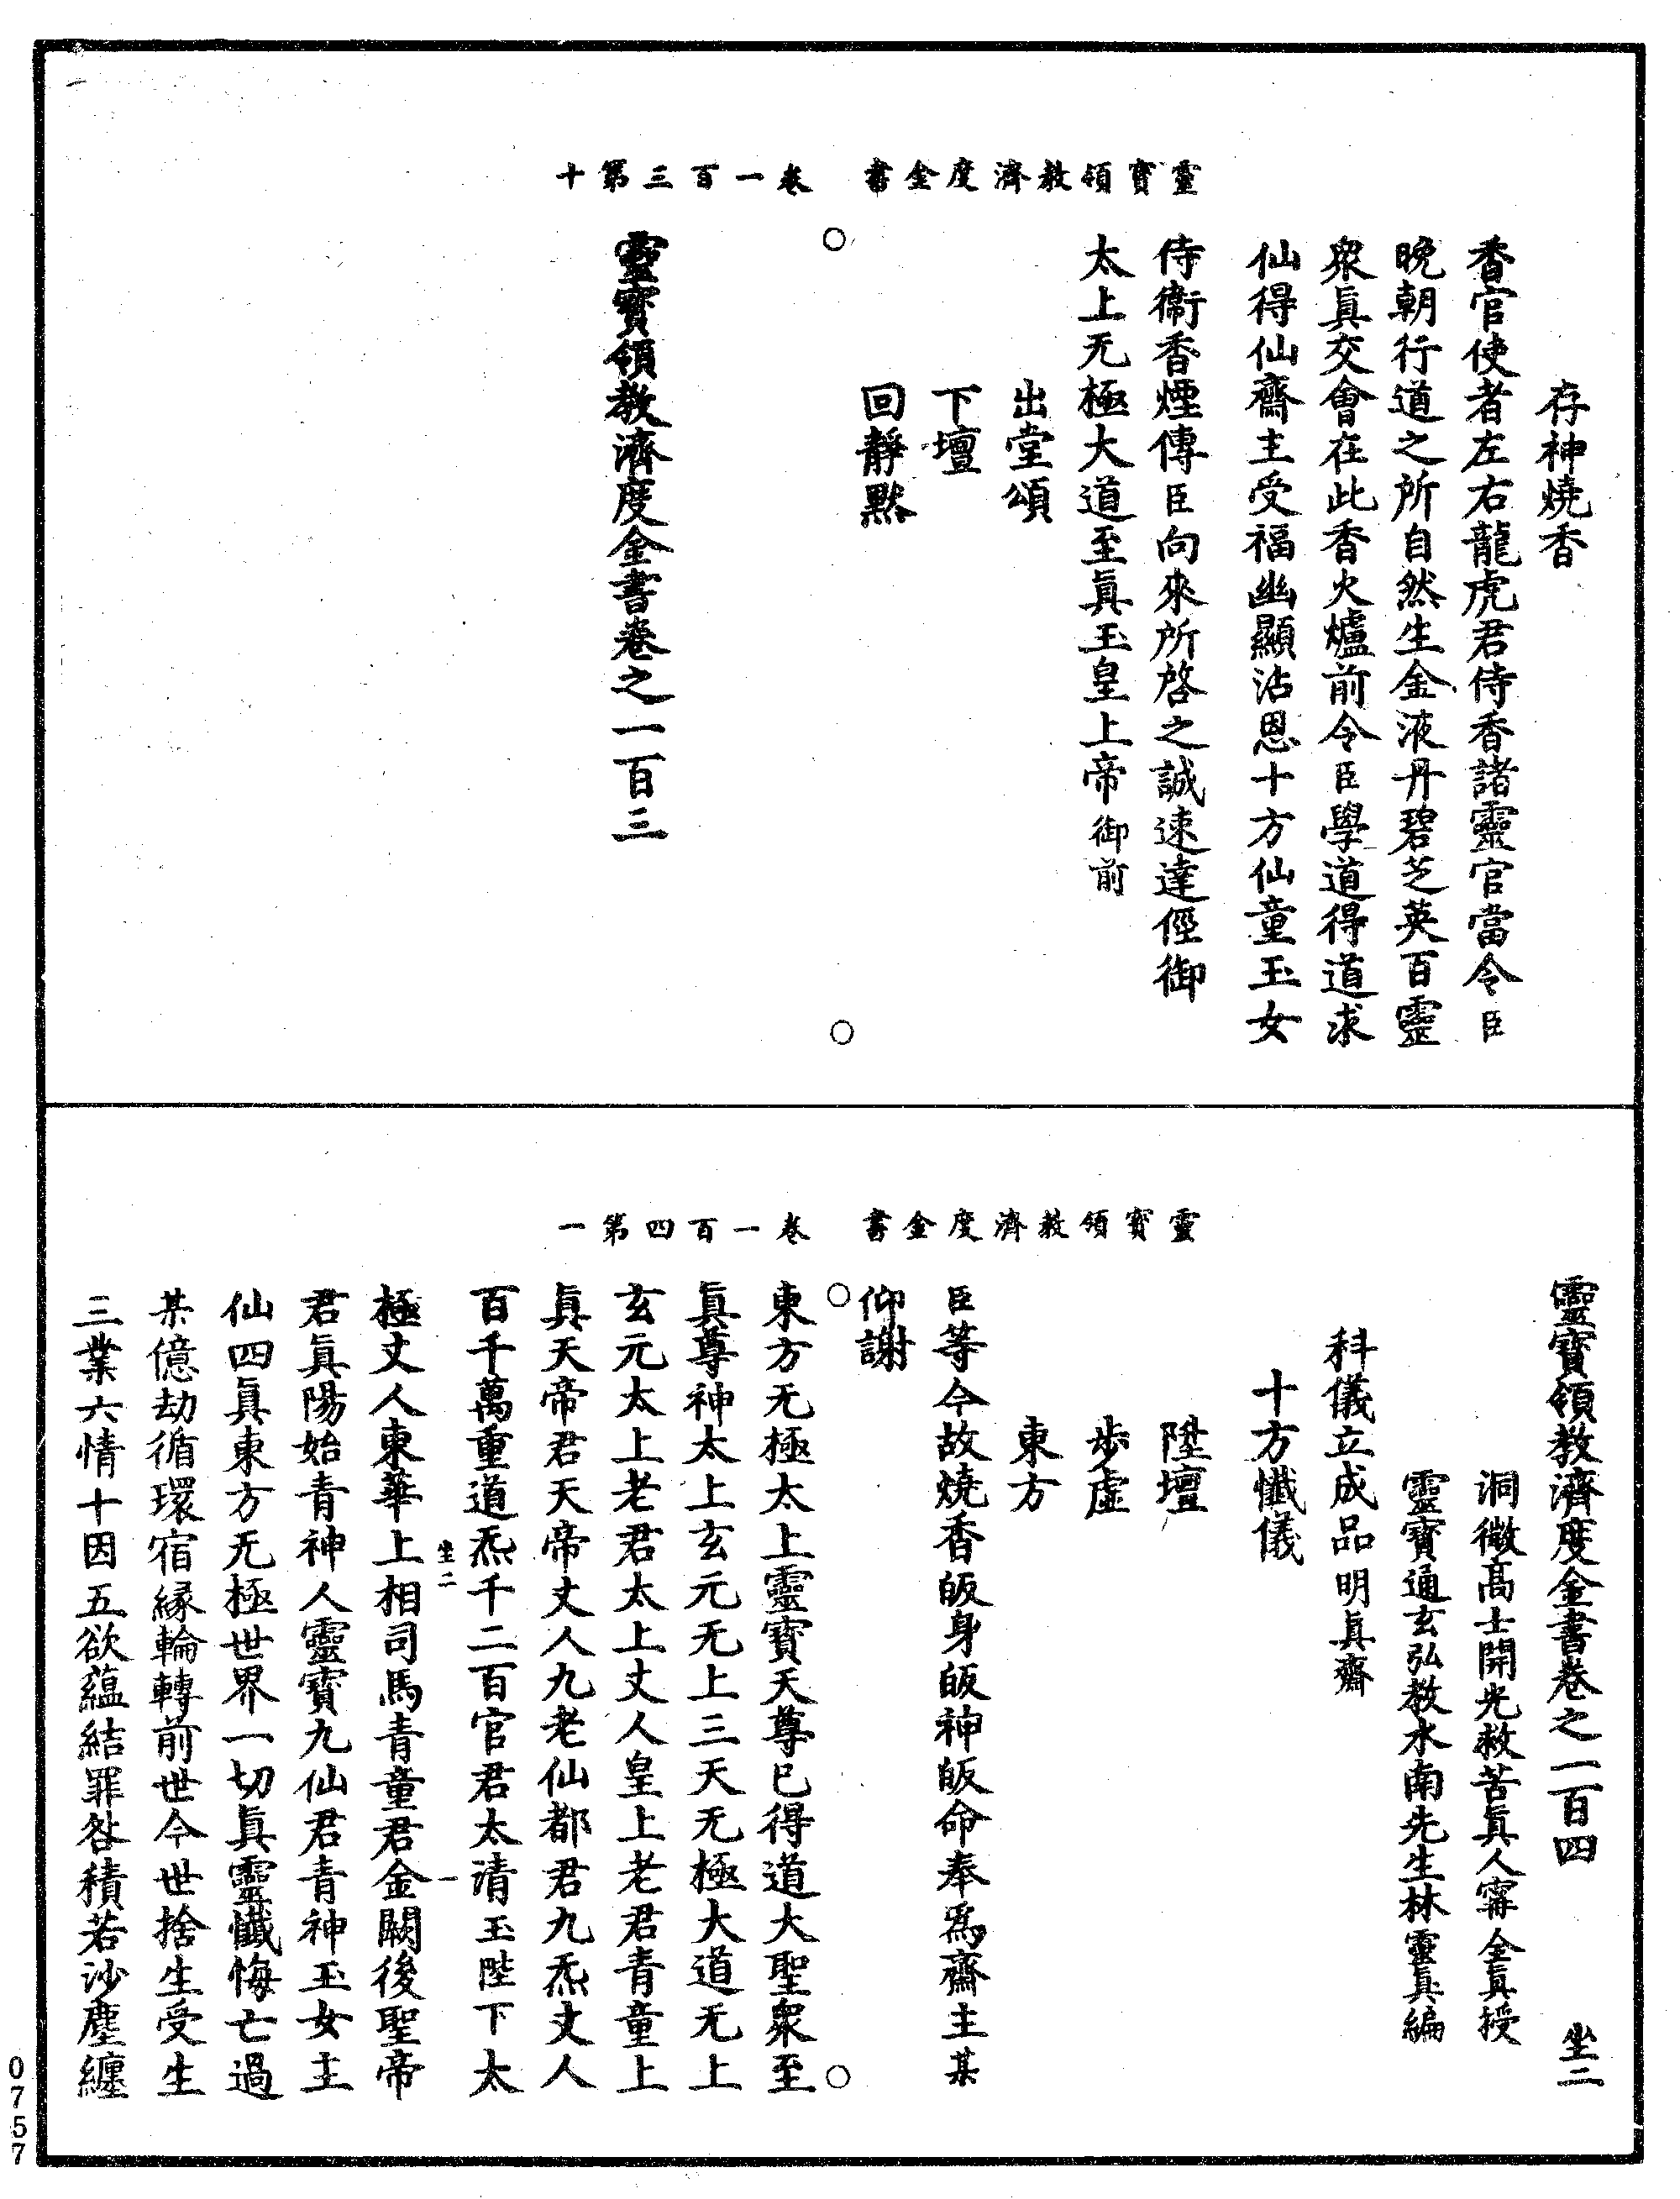 靈寶領教濟度金書　卷一百三第十
存神燒香
香官使者左右龍虎君侍香諸靈官當令臣
晚朝行道之所自然生金液丹碧芝英百靈
衆眞交會在此香火爐前令臣學道得道求
仙得仙齋主受福幽顯沾恩十方仙童玉女
侍衞香煙傳臣向來所啓之誠速達俓御
太上无極大道至眞玉皇上帝御前
出堂頌
下壇
回靜黙
靈寶領教濟度金書卷之一百三
靈寶領教濟度金書　卷一百四第一
靈寶領教濟度金書卷之一百四　坐二
洞微高士開光救苦眞人寗全眞授
靈寶通玄弘教水南先生林靈眞編
科儀立成品明眞齋
十方懺儀
陞壇
步虛
東方
臣等今故燒香皈身皈神皈命奉爲齋主某
仰謝
東方无極太上靈寶天尊已得道大聖衆至
眞尊神太上玄元无上三天无極大道无上
玄元太上老君太上丈人皇上老君青童上
眞天帝君天帝丈人九老仙都君九炁丈人
百千萬重道炁千二百官君太清玉陛下太
坐二　一
極丈人東華上相司馬青童君金闕後聖帝
君眞陽始青神人靈寶九仙君青神玉女主
仙四眞東方无極世界一切眞靈懺悔亡過
某億劫循環宿縁輪轉前世今世捨生受生
三業六情十因五欲蘊結罪咎積若沙塵纏
0757